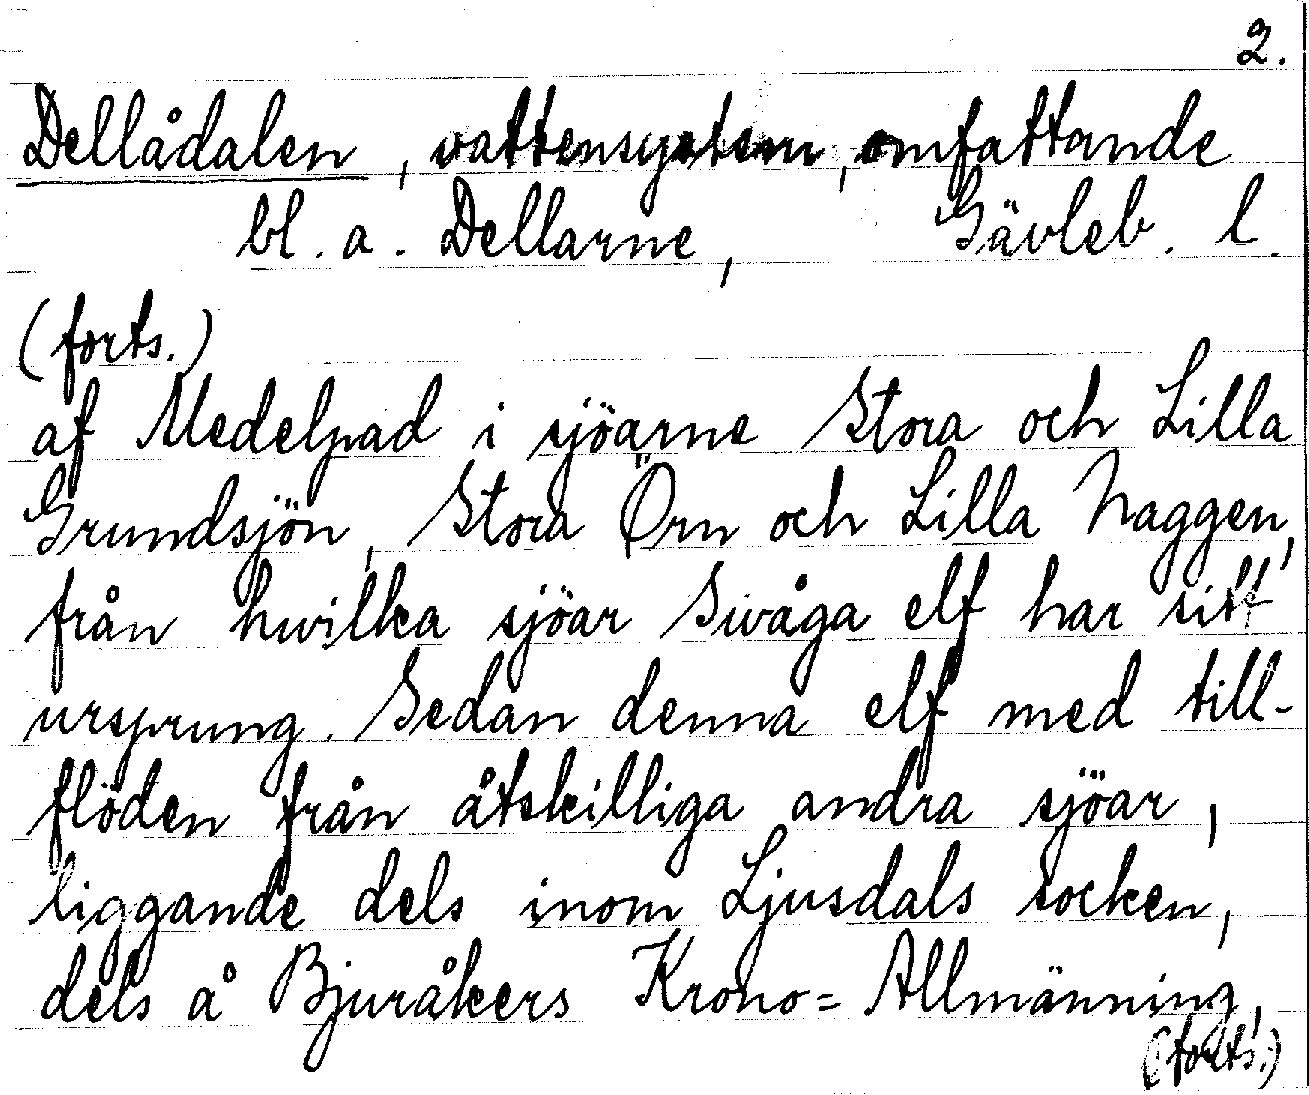 2.
Dellådalen, vattensystem, omfattande
bl. a. Dellarne, Gävleb. l.
(forts.)
af Medelpad i sjöarne Stora och Lilla
Grundsjön, Stora Örn och Lilla Naggen,
från hwilka sjöar Swåga elf har sitt
ursprung. Sedan denna elf med till-
flöden från åtskilliga andra sjöar,
liggande dels inom Ljusdals socken,
dels å Bjuråkers Krono= Allmänning,
(forts.)